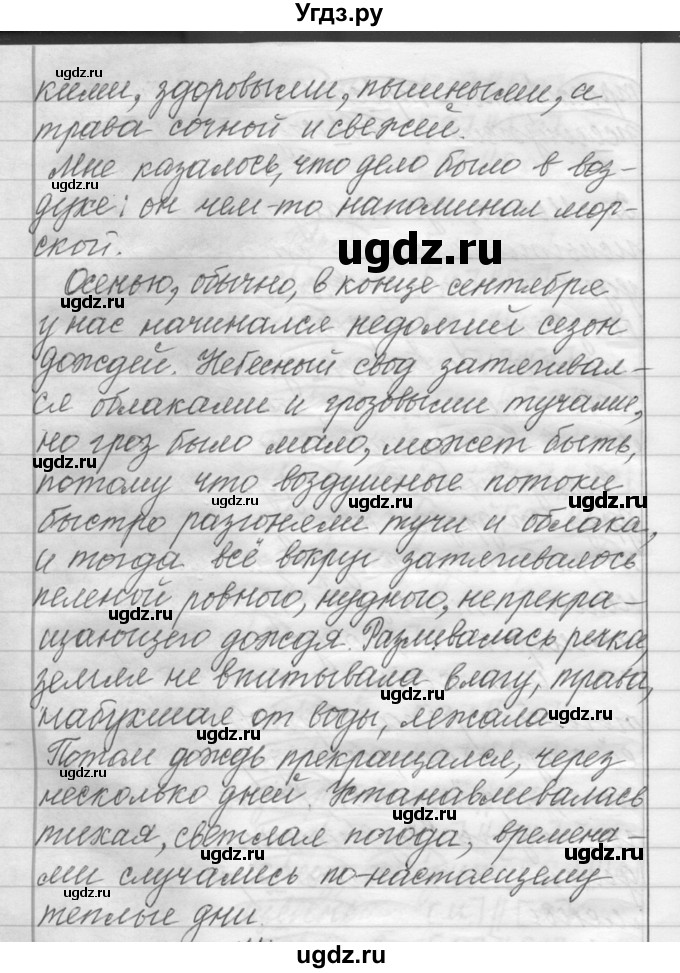 Угдз.ру
кими, здоровыми, пышными, а
трава сочной и свежей.
Мне казалось, что дело было в воз-
духе: он чем-то напоминал мор-
ской.
Осенью, обычно, в конце сентября
у нас начинался недолгий сезон
дождей. Небесный свод затягивал-
ся облаками и грозовыми тучами,
но гроз было мало, может быть,
потому что воздушные потоки
быстро разгоняли тучи и облака,
и тогда всё вокруг затягивалось
пеленой ровного, нудного, непрекра-
щающего дождя. Разливалась речка,
земля не впитывала влагу, трава,
набухшая от воды, лежала.
Потом дождь прекращался, через
несколько дней. Устанавливалась
тихая, светлая погода, времена-
ми случались по-настоящему
теплые дни.
ugdz.ru